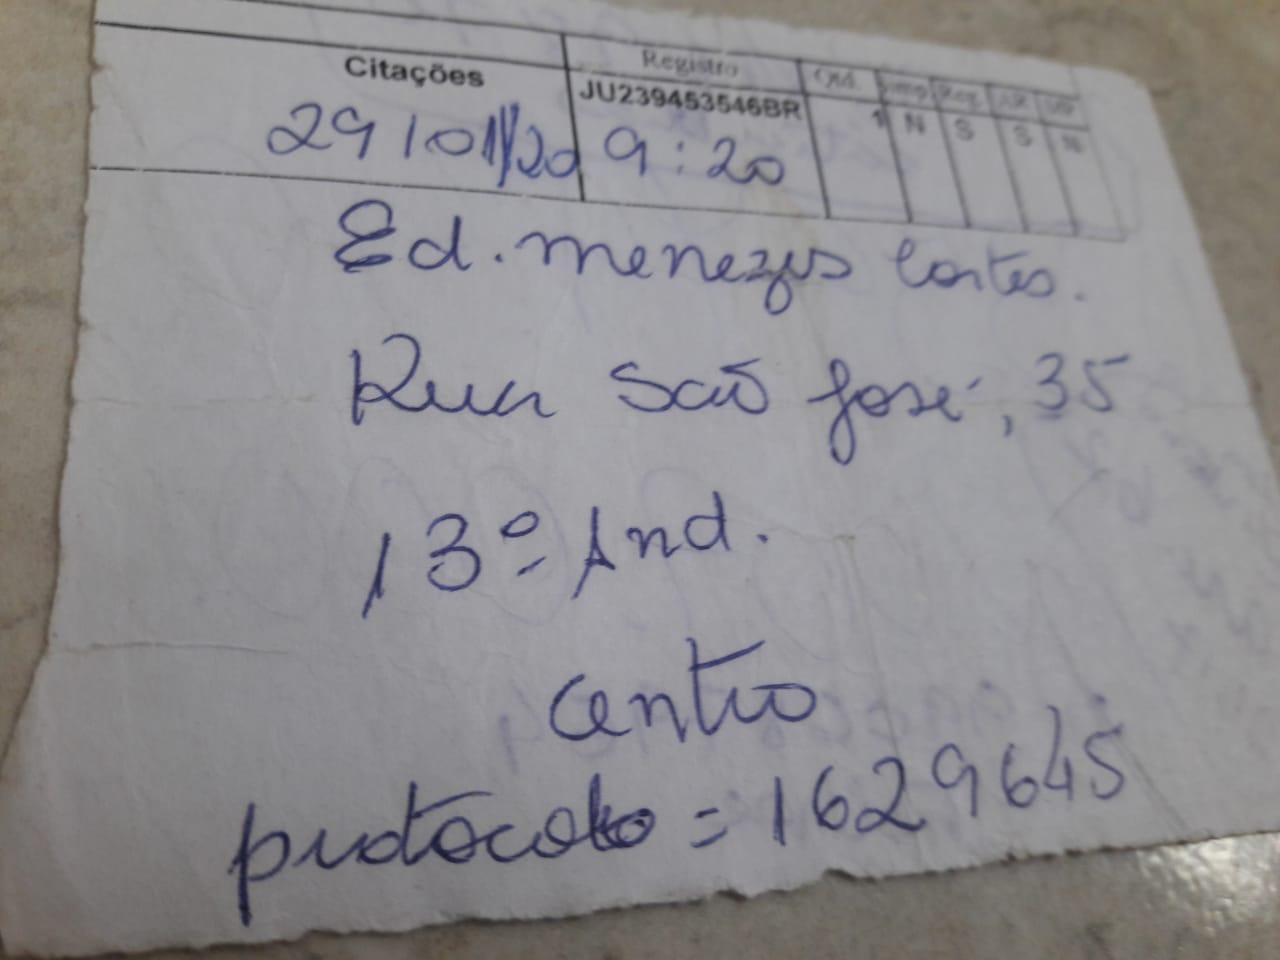 Citações Registro Qtd. Reg. AR MP
JU239453546BR 1 N S S N
29/01/20 9:20
Ed. menezes Cortes.
Rua São José, 35
13º And.
Centro
protocolo = 1629645